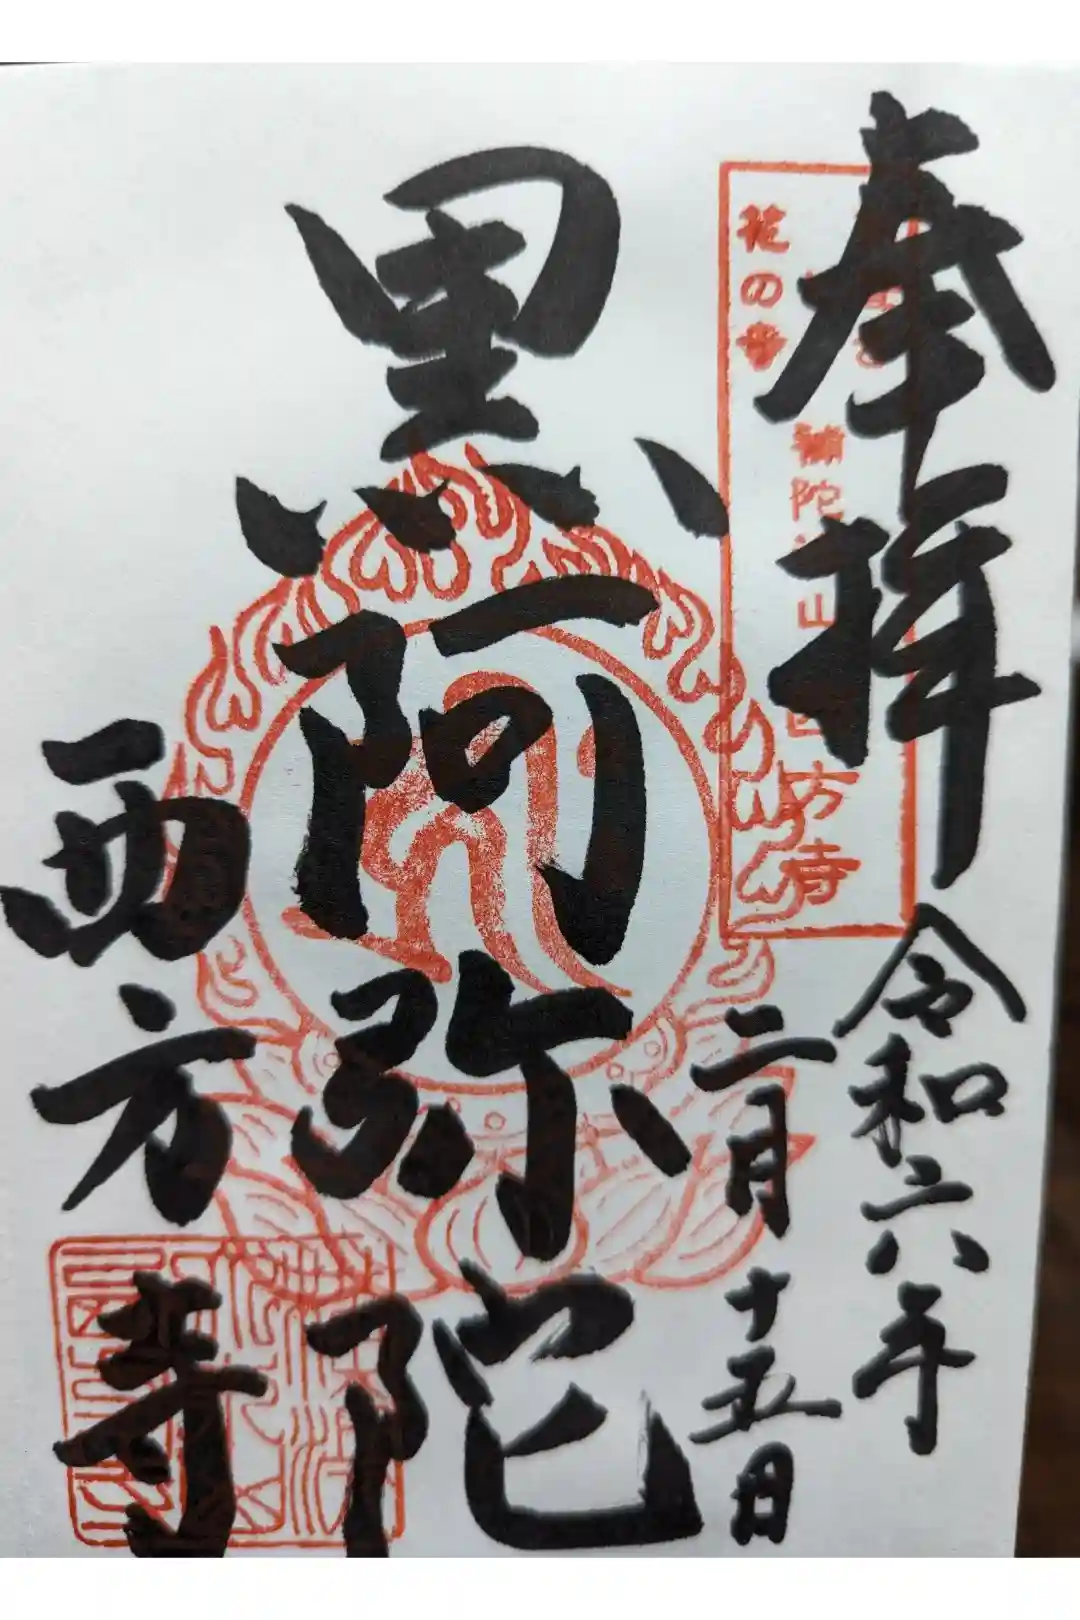 奉拝
令和六年
二月十五日
黒阿弥陀
西方寺
補陀洛山
西方寺
花の寺